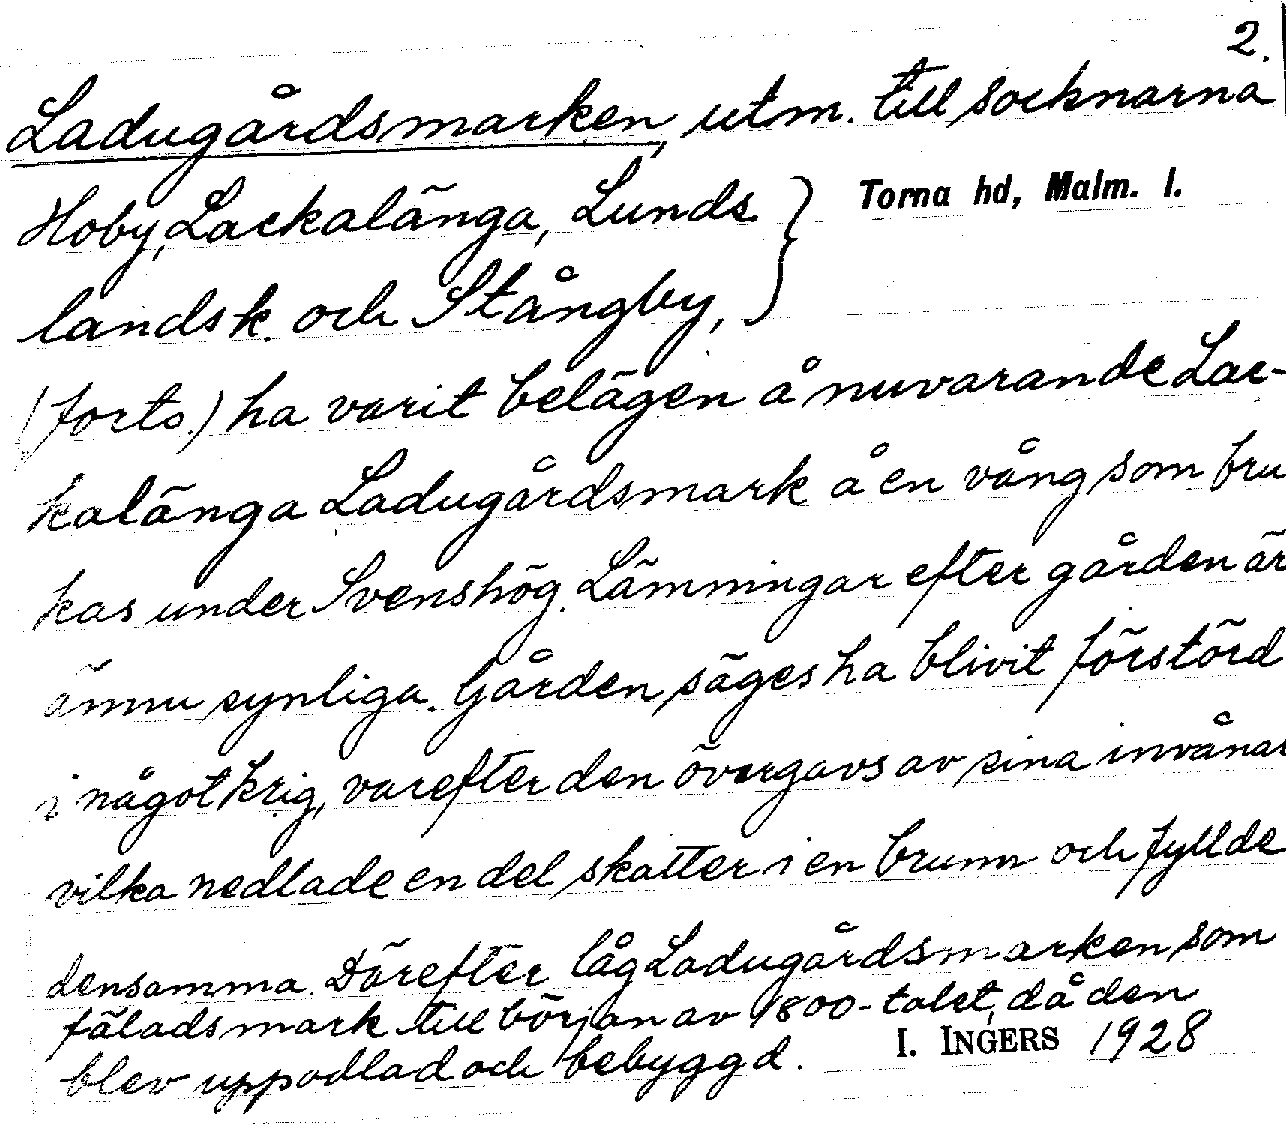 2.
Ladugårdsmarken, utm. till socknarna
Hoby, Lackalänga, Lunds } Torna hd, Malm. l.
landsk. och Stångby,
(forts.) ha varit belägen å nuvarande Lac-
kalänga Ladugårdsmark å en vång som bru
kas under Svenshög. Lämningar efter gården är
ännu synliga. Gården säges ha blivit förstörd
i något krig, varefter den övergavs av sina invånar
vilka nedlade en del skatter i en brunn och fyllde
densamma. Därefter låg Ladugårdsmarken som
fäladsmark till början av 1800-talet, då den
blev uppodlad och bebyggd. I. INGERS 1928